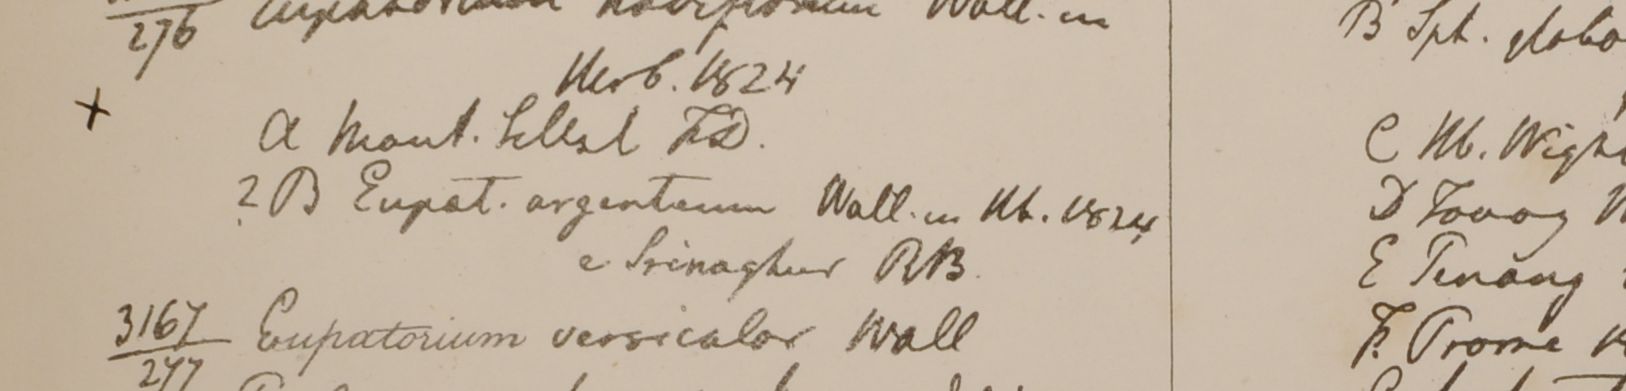 276 Eupatorium Wall. in
Herb. 1824
+
a Mont. Sillet FD.
? B Eupat. argenteum Wall. in Hb. 1824
e Srinaghur RB.
3167 Eupatorium versicolor Wall
277
B Sph.
C Hb. Wight
D Tavoy
E Penang
F. Prome